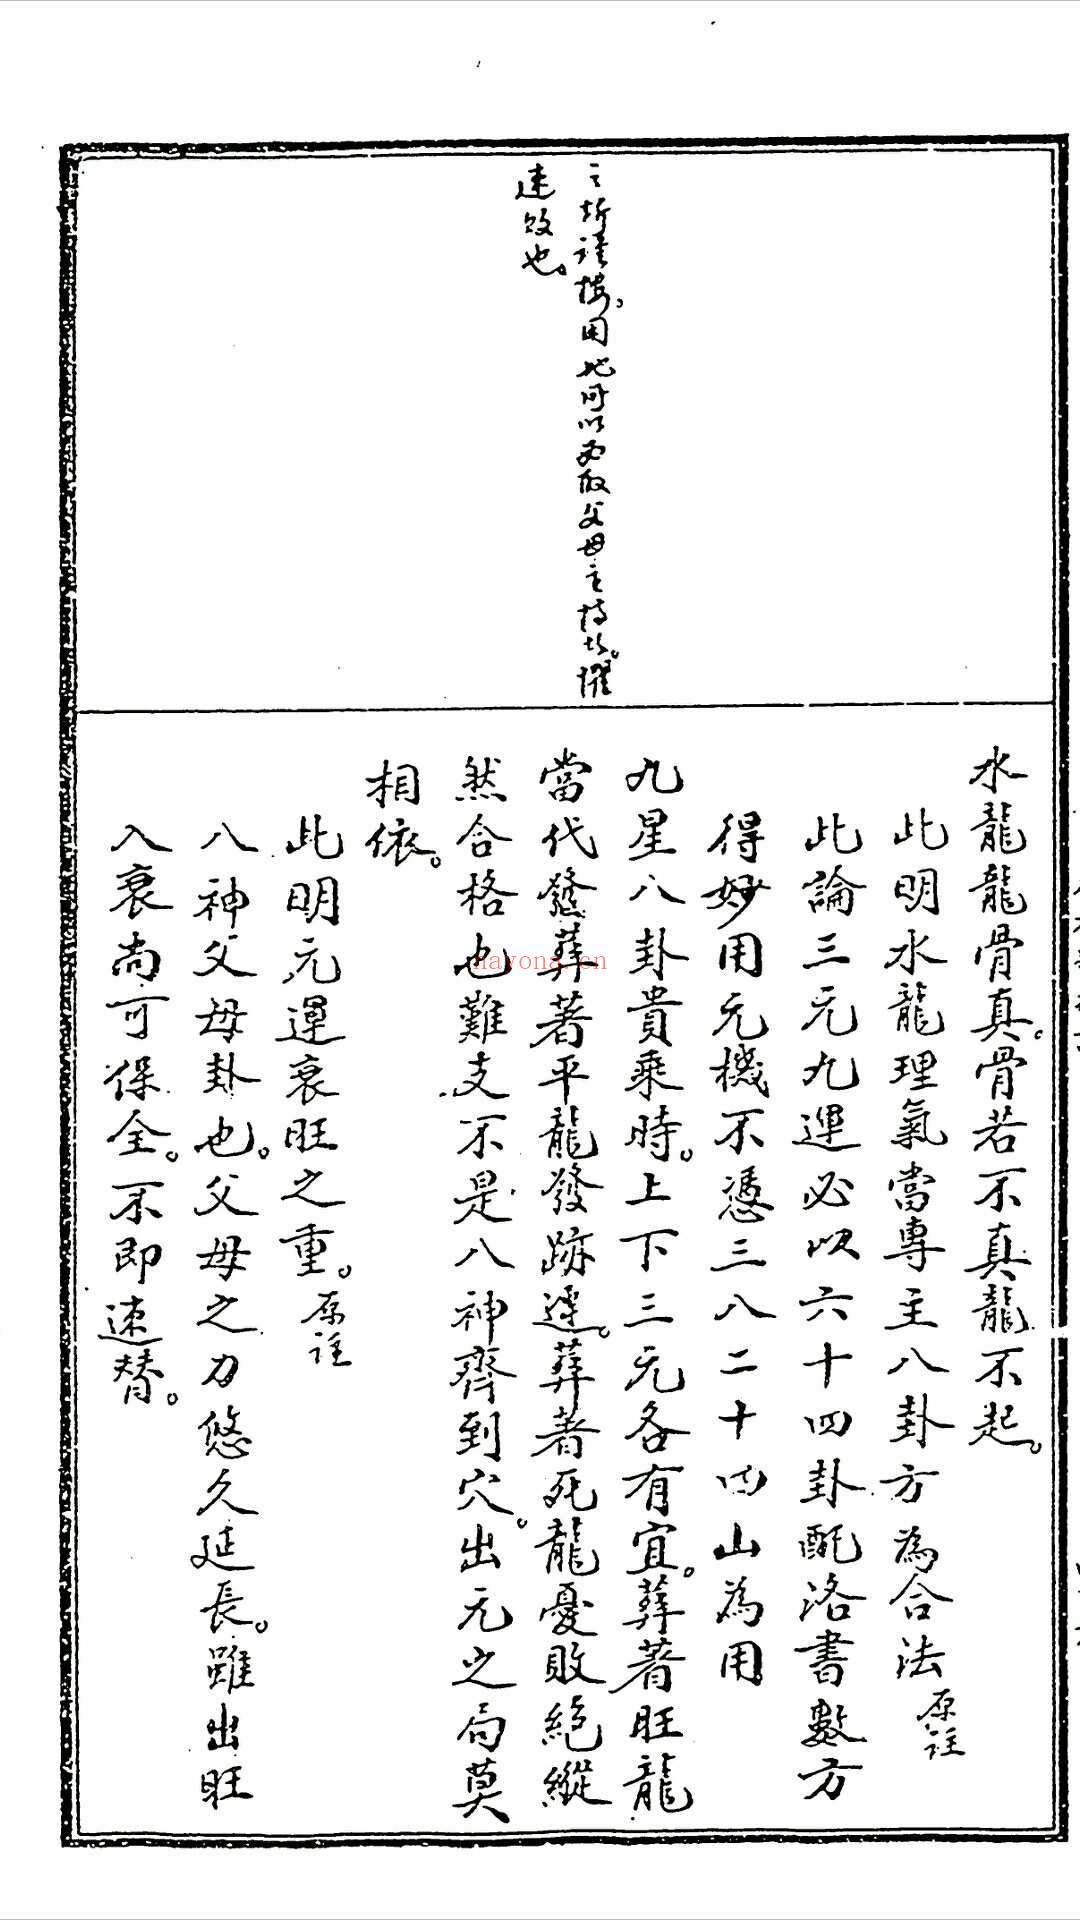 速敗也。
水龍龍骨真。骨若不真龍不起。
此明水龍理氣當專主八卦方為合法 原註
此論三元九運必以六十四卦配洛書數方
得妙用元機不憑三八二十四山為用
九星八卦貴乘時。上下三元各有宜。葬著旺龍
當代發葬著平龍發跡遲。葬著死龍憂敗絕縱
然合格也難支不是八神齊到穴。出元之局莫
相依。
此明元運衰旺之重。原註
八神父母卦也。父母之力悠久延長。雖出旺
入衰尚可保全。不即速替。
nayona.cn